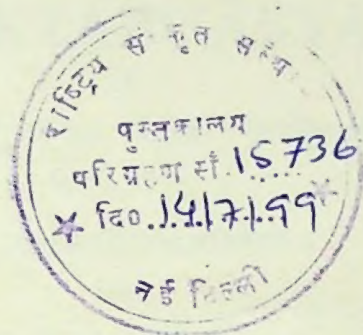 राष्ट्रिय संस्कृत संस्थान
पुस्तकालय
परिग्रहण सं. 15736
दि० 14/7/99
नई दिल्ली